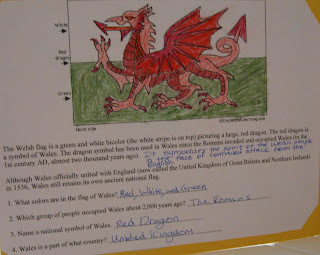 White
Red
Dragon
Green
Hoist side
©EnchantedLearning.com
The Welsh flag is a green and white bicolor (the white stripe is on top) picturing a large, red dragon. The red dragon is
a symbol of Wales. The dragon symbol has been used in Wales since the Romans invaded and occupied Wales in the
1st century AD, almost two thousand years ago). It symbolizes the spirit of the Welsh people
in the face of continued attack from the
English.
Although Wales officially united with England (now called the United Kingdom of Great Britain and Northern Ireland)
in 1536, Wales still retains its own ancient national flag.
1. What colors are in the flag of Wales? Red, White, and Green
2. Which group of people occupied Wales about 2,000 years ago? The Romans
3. Name a national symbol of Wales. Red Dragon
4. Wales is a part of what country? United Kingdom